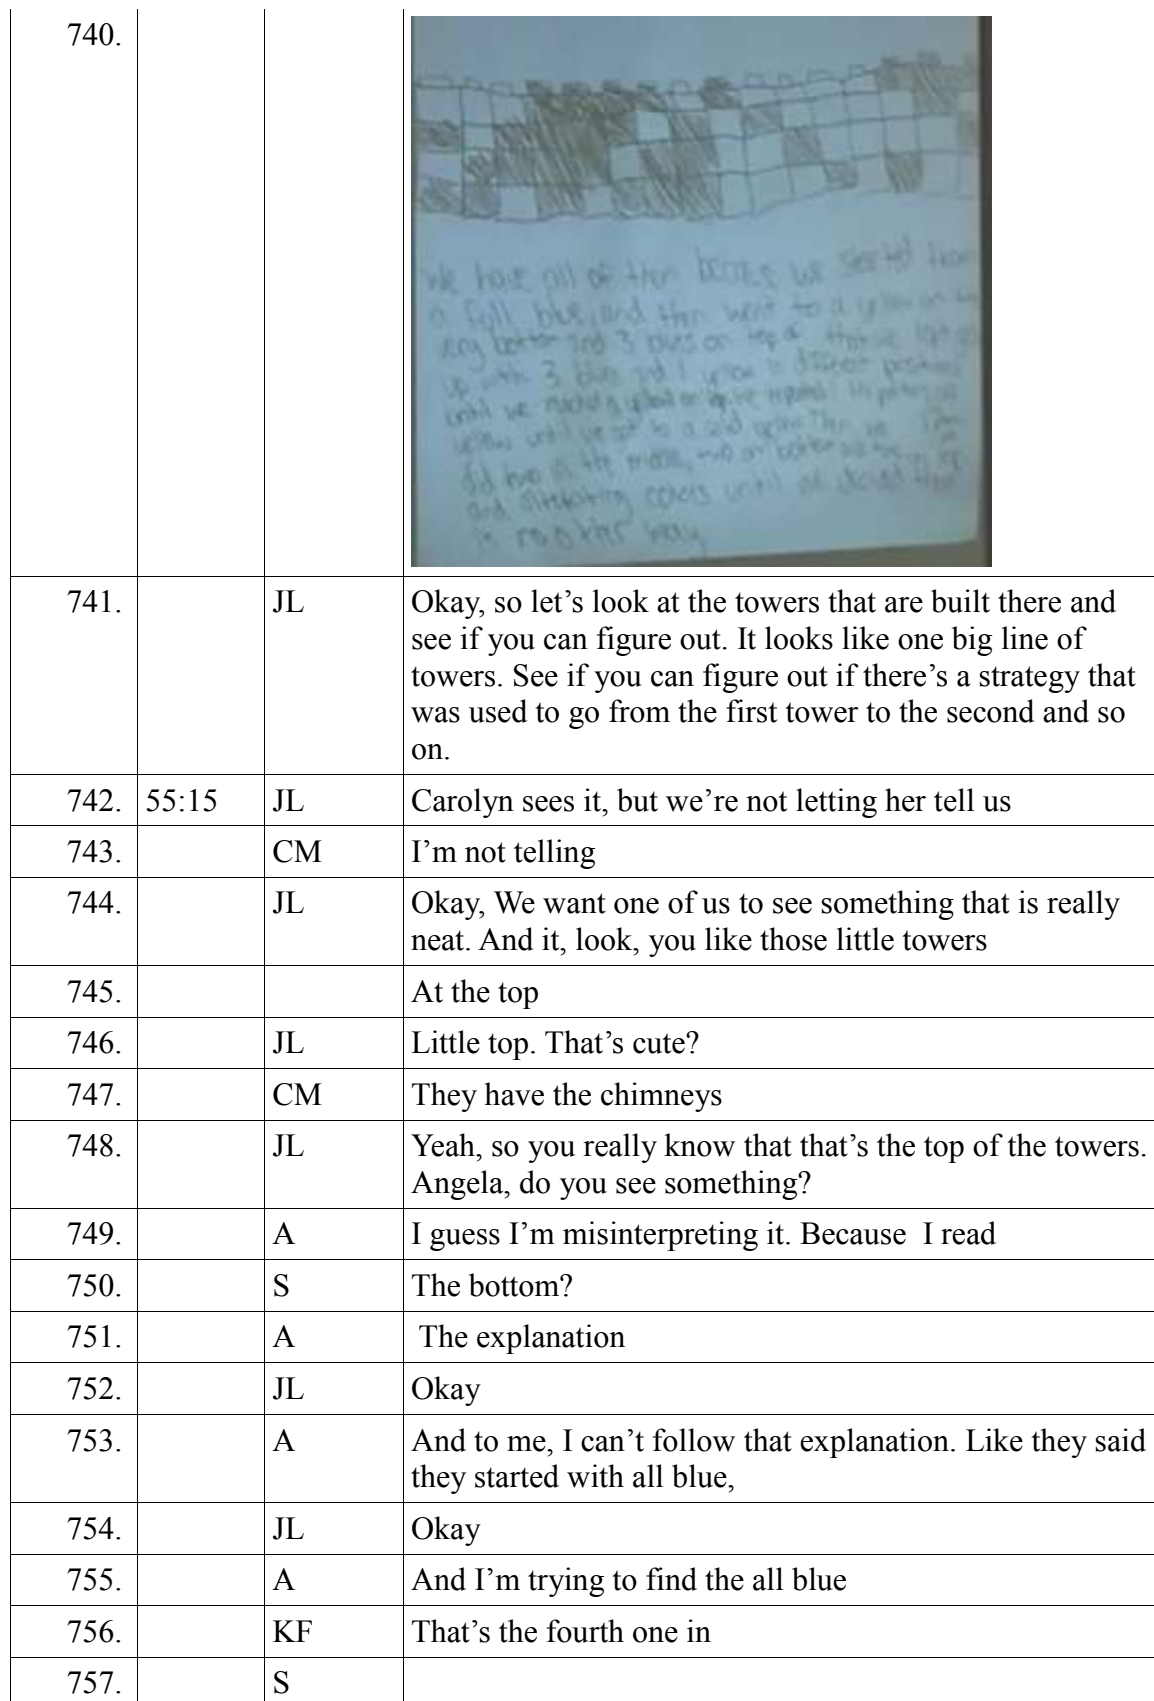 740.
we have all of them we started from
a full blue, and then went to a yellow on the
very bottom and 3 blues on top of
up with 3 blues and 1 yellow in different positions
until we reached a yellow on
yellow until we got to a solid yellow Then we
did two in the middle, two on bottom
and alternating colors until we decided there
is no other way
741. JL Okay, so let’s look at the towers that are built there and
see if you can figure out. It looks like one big line of
towers. See if you can figure out if there’s a strategy that
was used to go from the first tower to the second and so
on.
742. 55:15 JL Carolyn sees it, but we’re not letting her tell us
743. CM I’m not telling
744. JL Okay, We want one of us to see something that is really
neat. And it, look, you like those little towers
745. At the top
746. JL Little top. That’s cute?
747. CM They have the chimneys
748. JL Yeah, so you really know that that’s the top of the towers.
Angela, do you see something?
749. A I guess I’m misinterpreting it. Because I read
750. S The bottom?
751. A The explanation
752. JL Okay
753. A And to me, I can’t follow that explanation. Like they said
they started with all blue,
754. JL Okay
755. A And I’m trying to find the all blue
756. KF That’s the fourth one in
757. S